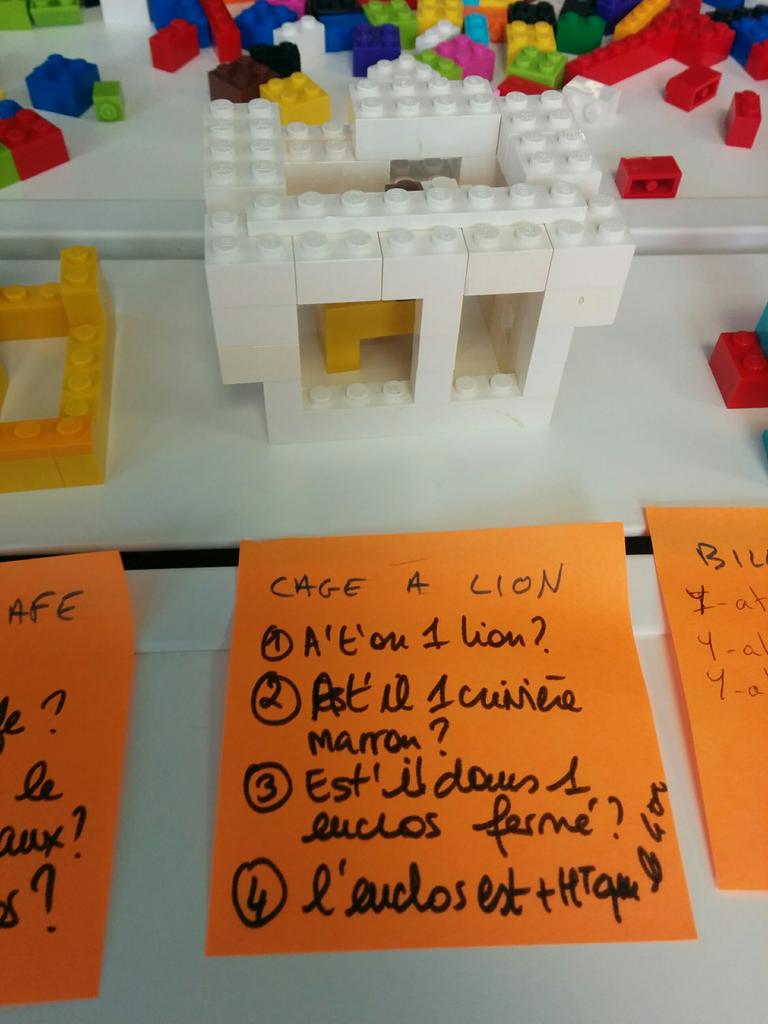 AFE
fe?
le
aux?
os?
CAGE A LION
① A't'on 1 lion?
② Ast'il 1 crinière
marron?
③ Est'il dans 1
enclos fermé?
④ l'enclos est + HT que
le lion
BIL
Y-at
Y-at
Y-a